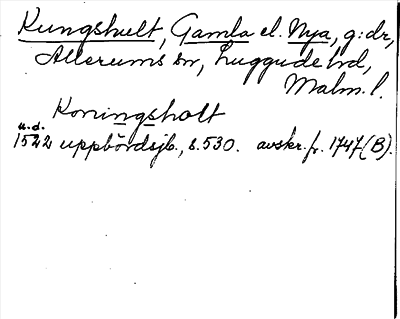 Kungshult, Gamla el. Nya, g:dr,
Allerums sn, Luggude hd,
Malm. l.
Koningsholt
u.d.
1522 uppbördsjb., s. 530. avskr. fr. 1747 (B).